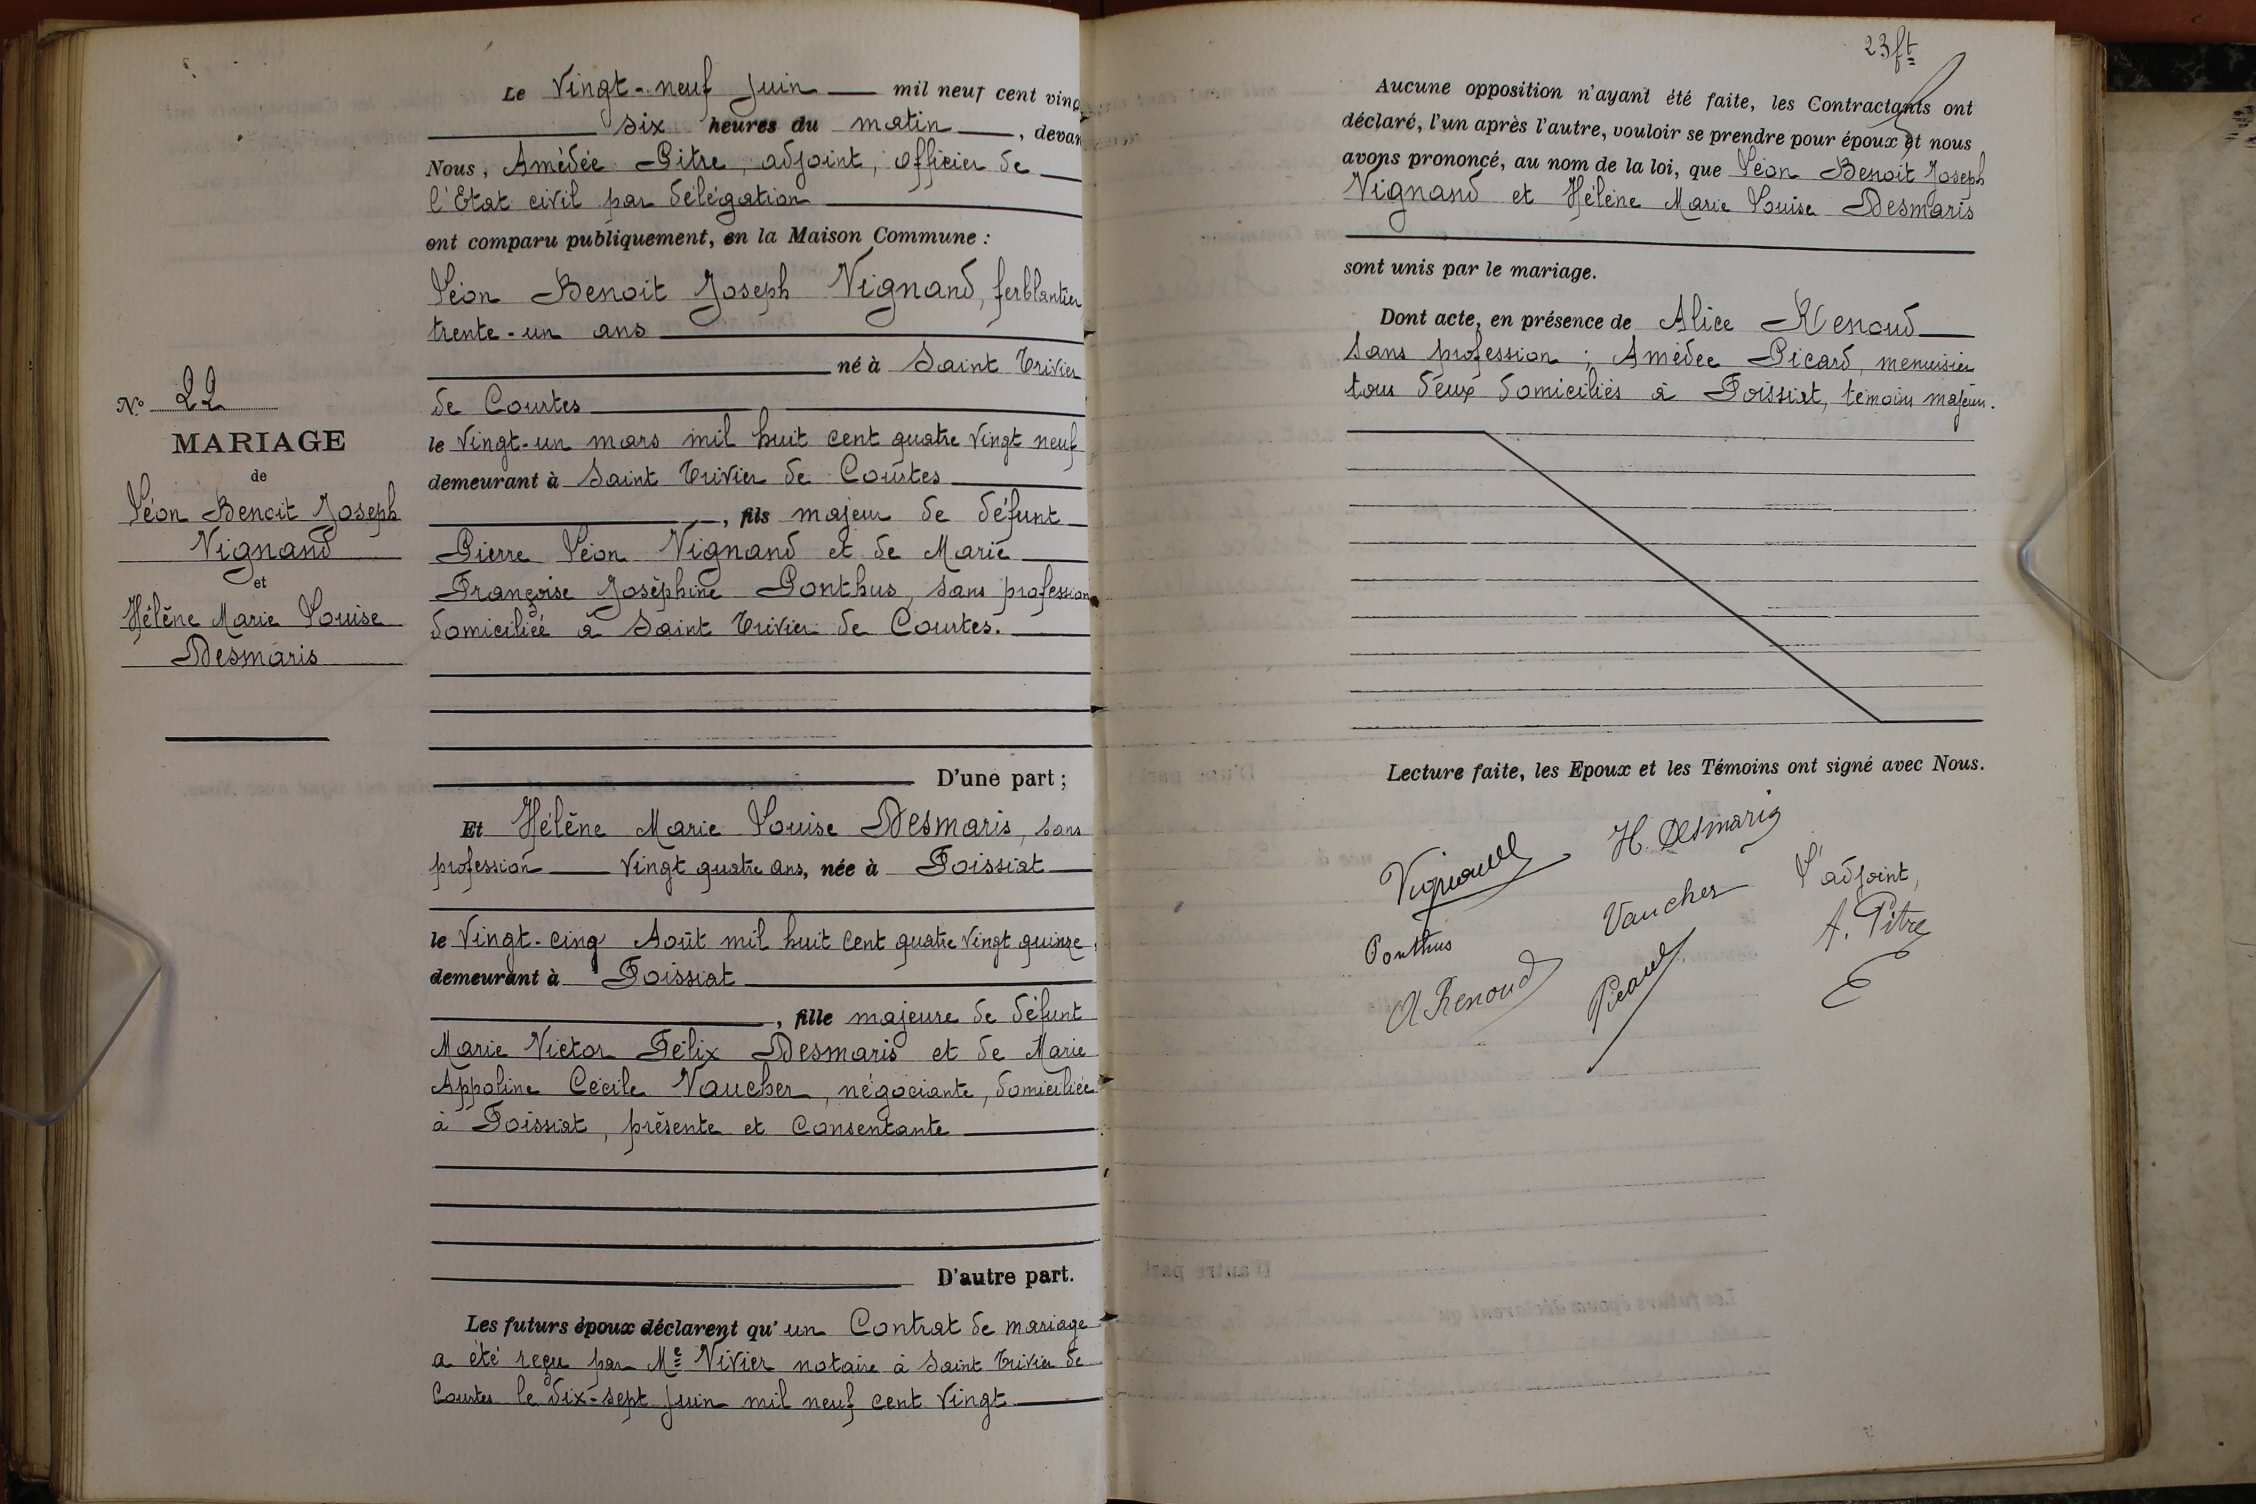 Le Vingt-neuf Juin mil neuf cent ving
six heures du matin, devan
Nous, Amédée Pitre, adjoint, officier de
l'Etat civil par délégation
ont comparu publiquement, en la Maison Commune :
Léon Benoit Joseph Vignand, ferblantier
trente-un ans
né à Saint Trivier
de Courtes
le Vingt-un mars mil huit cent quatre vingt neuf
demeurant à Saint Trivier de Courtes
, fils majeur de défunt
Pierre Léon Vignand et de Marie
Françoise Joséphine Ponthus, sans profession
domiciliée à Saint Trivier de Courtes.
No 22
MARIAGE
de
Léon Benoit Joseph
Vignand
et
Hélène Marie Louise
Desmaris
D'une part ;
Et Hélène Marie Louise Desmaris, sans
profession Vingt quatre ans, née à Foissiat
le Vingt-cinq Août mil huit cent quatre vingt quinze,
demeurant à Foissiat
, fille majeure de défunt
Marie Victor Félix Desmaris et de Marie
Appoline Cécile Vaucher, négociante, domiciliée
à Foissiat, présente et Consentante
D'autre part.
Les futurs époux déclarent qu'un Contrat de mariage
a été reçu par Me Vivier notaire à Saint Trivier de
Courtes le dix-sept Juin mil neuf cent vingt
23 ft
Aucune opposition n'ayant été faite, les Contractants ont
déclaré, l'un après l'autre, vouloir se prendre pour époux et nous
avons prononcé, au nom de la loi, que Léon Benoit Joseph
Vignand et Hélène Marie Louise Desmaris
sont unis par le mariage.
Dont acte, en présence de Alice Renoud
sans profession ; Amédée Picard, menuisier
tous deux domiciliés à Foissiat, témoins majeurs.
Lecture faite, les Epoux et les Témoins ont signé avec Nous.
Vignand
H. Desmaris
L'adjoint,
Vaucher
A. Pitre
Ponthus
A Renoud
Picard